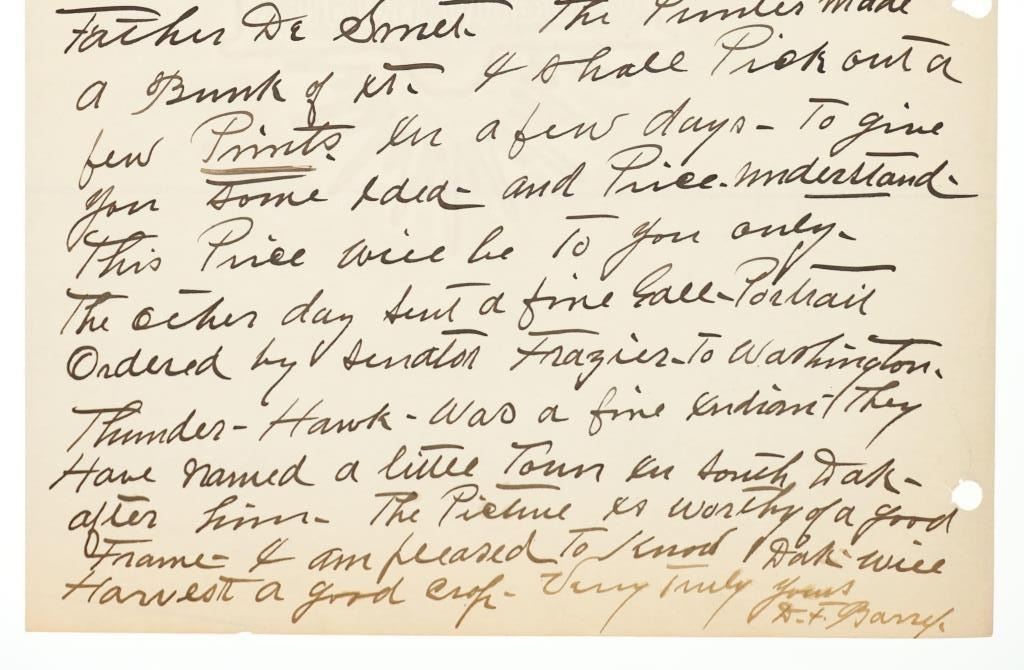 Father De Smet. The Printer made
a Bunk of It. I shall Pick out a
few Prints. In a few days - To give
you some Idea - and Price. Understand -
This Price will be To you only -
The other day sent a fine Gall - Portrait
Ordered by Senator Frazier - To Washington.
Thunder - Hawk - Was a fine Indian - They
Have named a little Town In South, Dak -
after him - The Picture Is worthy of a good
Frame - I am pleased To Know Dak will
Harvest a good crop - Very Truly yours
D. F. Barry.